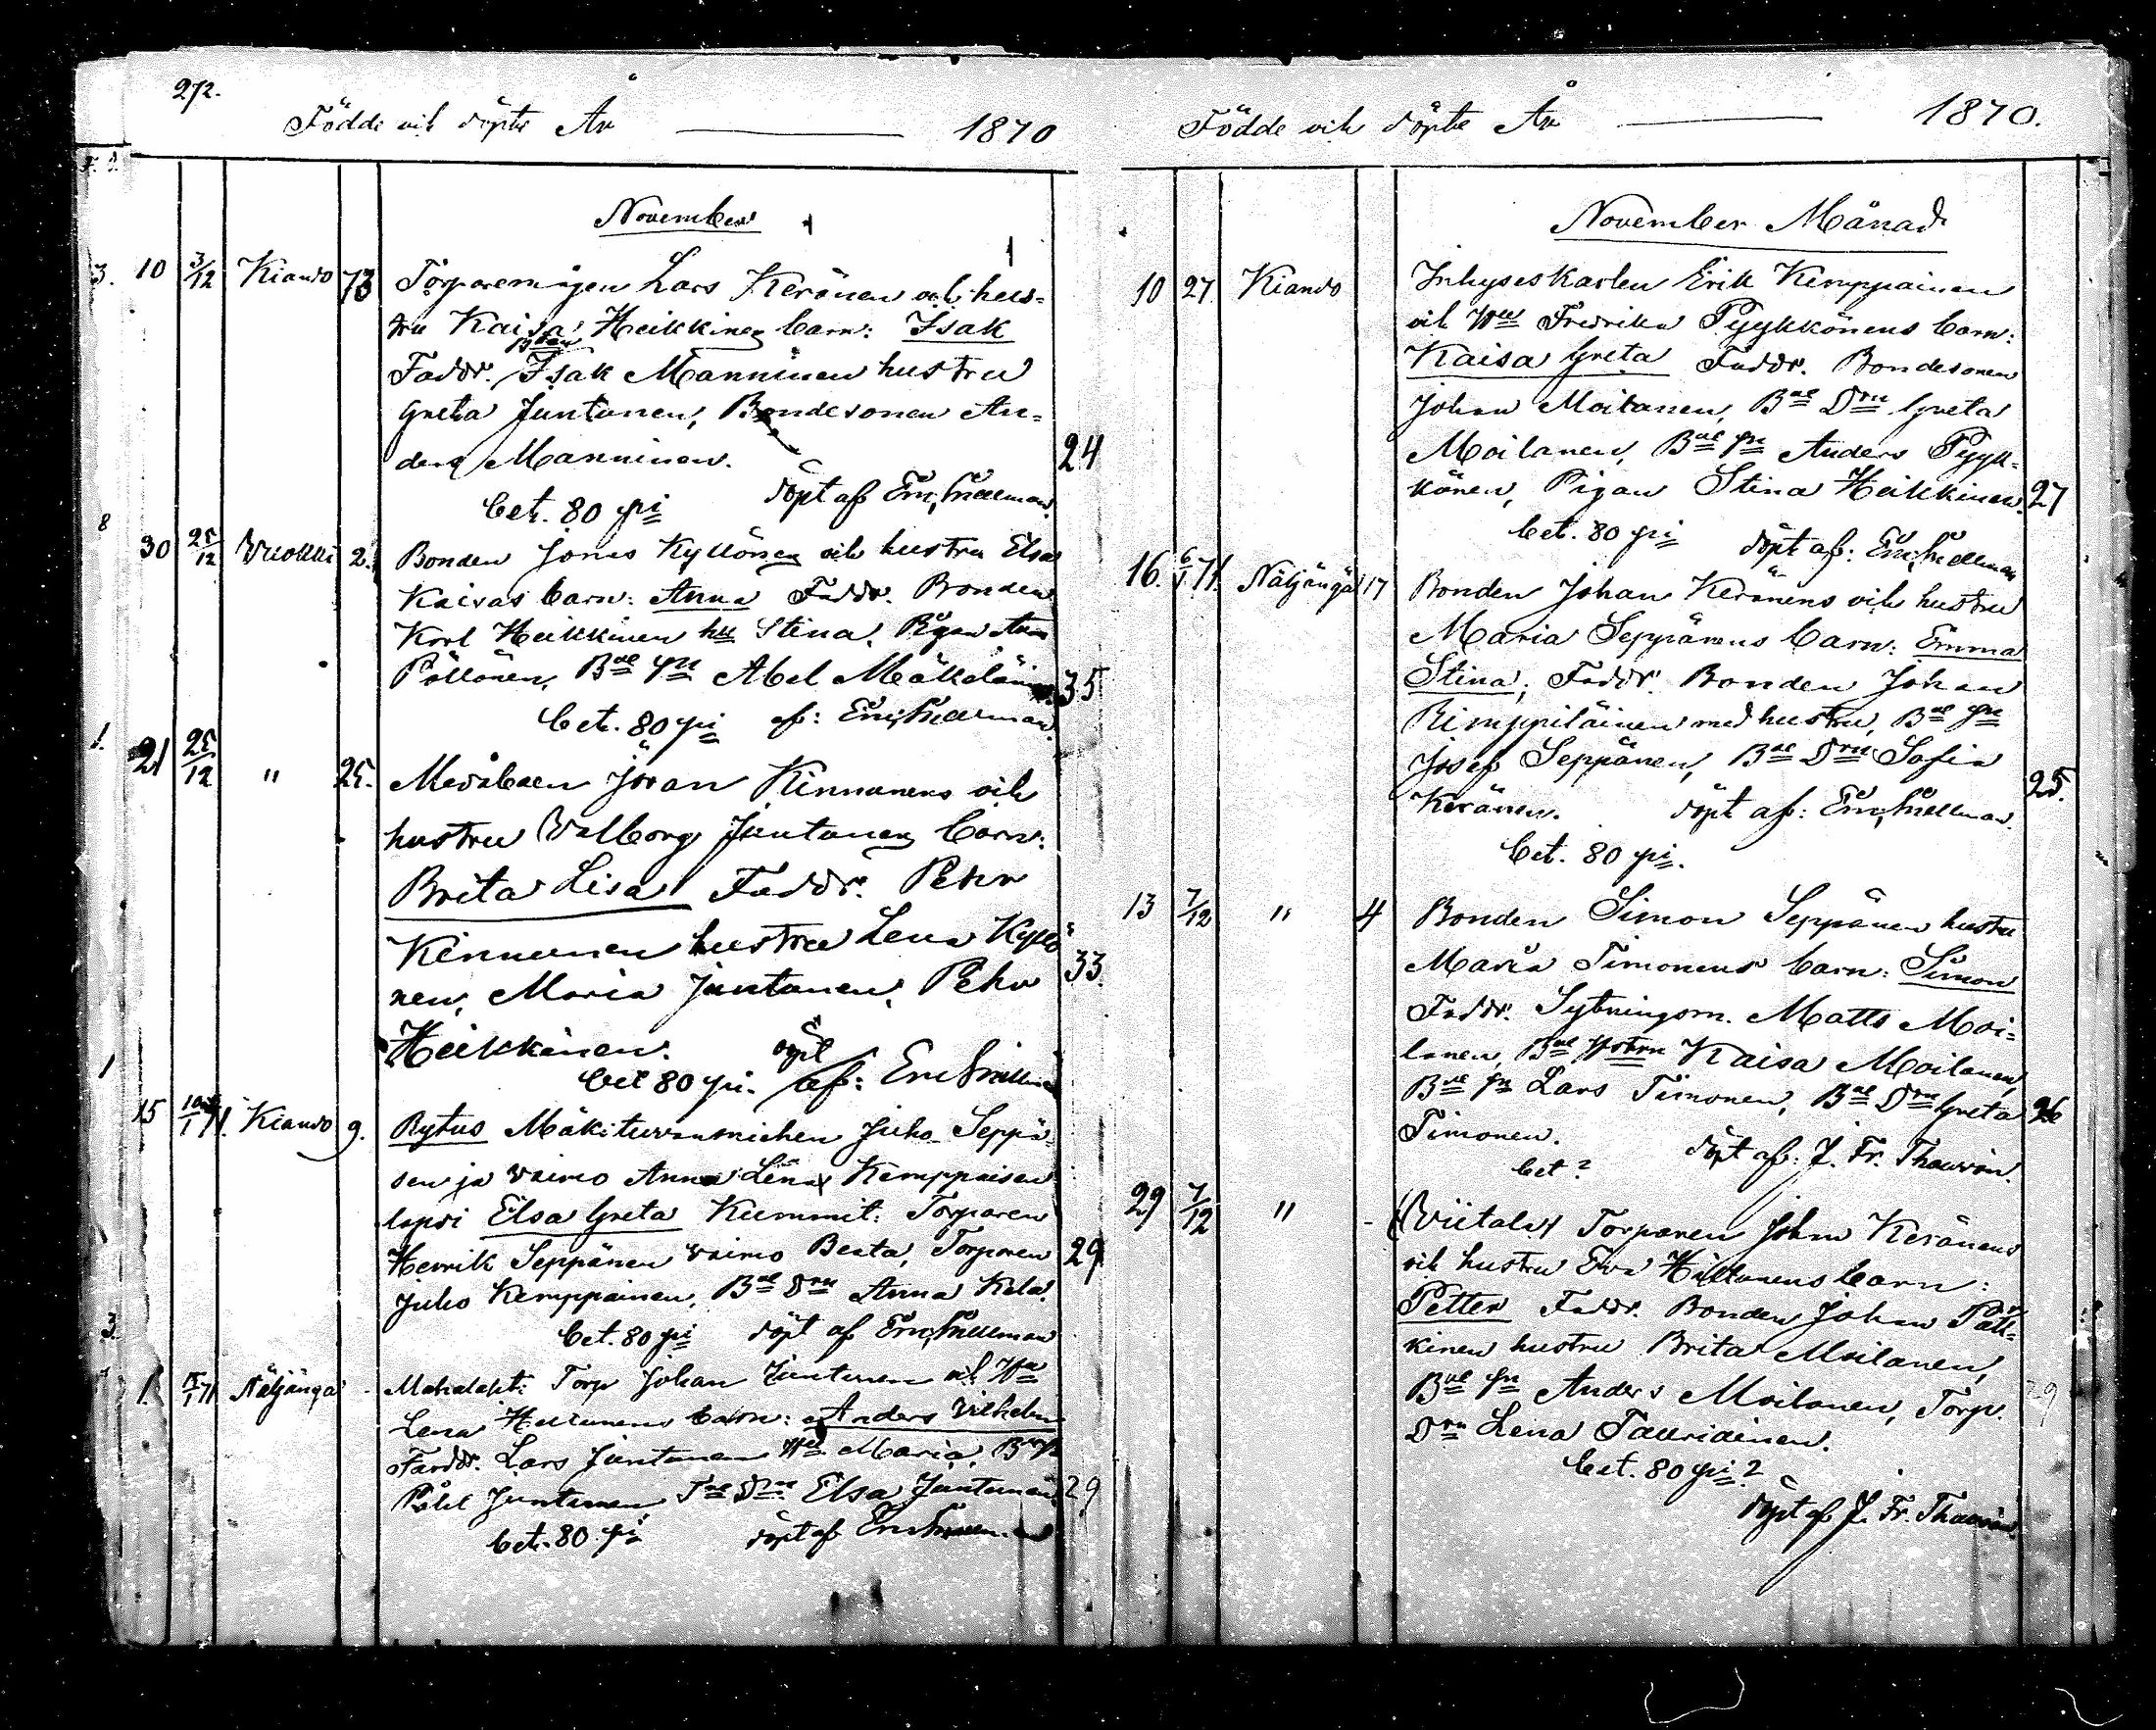 272.
Födde och döpte År 1870
November
3. 10 3/12 Kiando 73 Torparemågen Lars Keränen och hus=
tru Kaisa Heikkinen barn: Isak
Bonden
Faddr. Isak Manninen hustru
Greta Juntunen, Bondesonen An=
ders Manninen. 24
bet. 80 pi döpt af Em: Snellman.
8 30 25/12 Vuokki 2. Bonden Jonas Kyllönen och hustru Elsa
Kaisas barn: Anna Faddr. Bonden
Karl Heikkinen hu Stina, Pigan Anna
Pöllönen, Bde Sn Abel Mäkeläinen 35
bet. 80 pi af: Em: Snellman.
1. 21 25/12 " 25. Medåboen Jöran Kinnunens och
hustru Valborg Juntunen barn:
Brita Lisa Faddr. Pehr
Kinnunen hustru Lena Kyllö
nen, Maria Juntunen, Pehr 33.
Heikkinen. döpt
bet 80 pi. af: Em Snellman
1 15 /1 71. Kiando 9. Rytys Mäkituvanmiehen Juho Seppä-
sen ja vaimo Anna Lena Kemppaisen
lapsi Elsa Greta Kummit: Torparen
Henrik Seppänen vaimo Beata, Torparen 29
Juho Kemppainen, Bde Dru Anna Kela.
bet. 80 pi döpt af Em: Snellman
3. 1. /1 71 Näljängä - Torp Johan Juntunen och Hu
Lena barn: Anders Vilhelm
Faddr. Lars Juntunen Hu Maria,
Juntunen, Elsa Juntunen 29
bet. 80 pi döpt af Em Snellman
Födde och döpte År 1870.
November Månad
10 27 Kiando Inhyseskarlen Erik Kemppainen
och Hu Fredrika Pyykkönens barn:
Kaisa Greta Faddr. Bondesonen
Johan Moilanen, Bde Dru Greta
Moilanen, Bde Sn Anders Pyyk=
könen, Pigan Stina Heikkinen. 27
bet. 80 pi döpt af: Em: Snellman
16. 6/1 71. Näljängä 17 Bonden Johan Keränens och hustru
Maria Seppänens barn: Emma
Stina, Faddr. Bonden Johan
Rimppiläinen med hustru, Bde Sn
Josef Seppänen, Bde Dru Sofia 25.
Keränen. döpt af: Em: Snellman.
bet. 80 pi.
13 7/12 " 4 Bonden Simon Seppänen hustru
Maria Timonens barn: Simon
Faddr. Sytningsm. Matts Moi=
lanen, Bde Hstru Kaisa Moilanen,
Bde Sn Lars Timonen, Bde Dru Greta 26
Timonen. döpt af: J. Fr. Thauvón.
bet?
29 7/12 " - (Viitala) Torparen Johan Keränens
och hustru Eva Hiltunens barn:
Petter Faddr. Bonden Johan Pätt=
kinen hustru Brita Moilanen,
Bde Sn Anders Moilanen, Torp. 29
Dru Lena Tauriainen.
bet. 80 pi?
döpt af J. Fr. Thauvón.